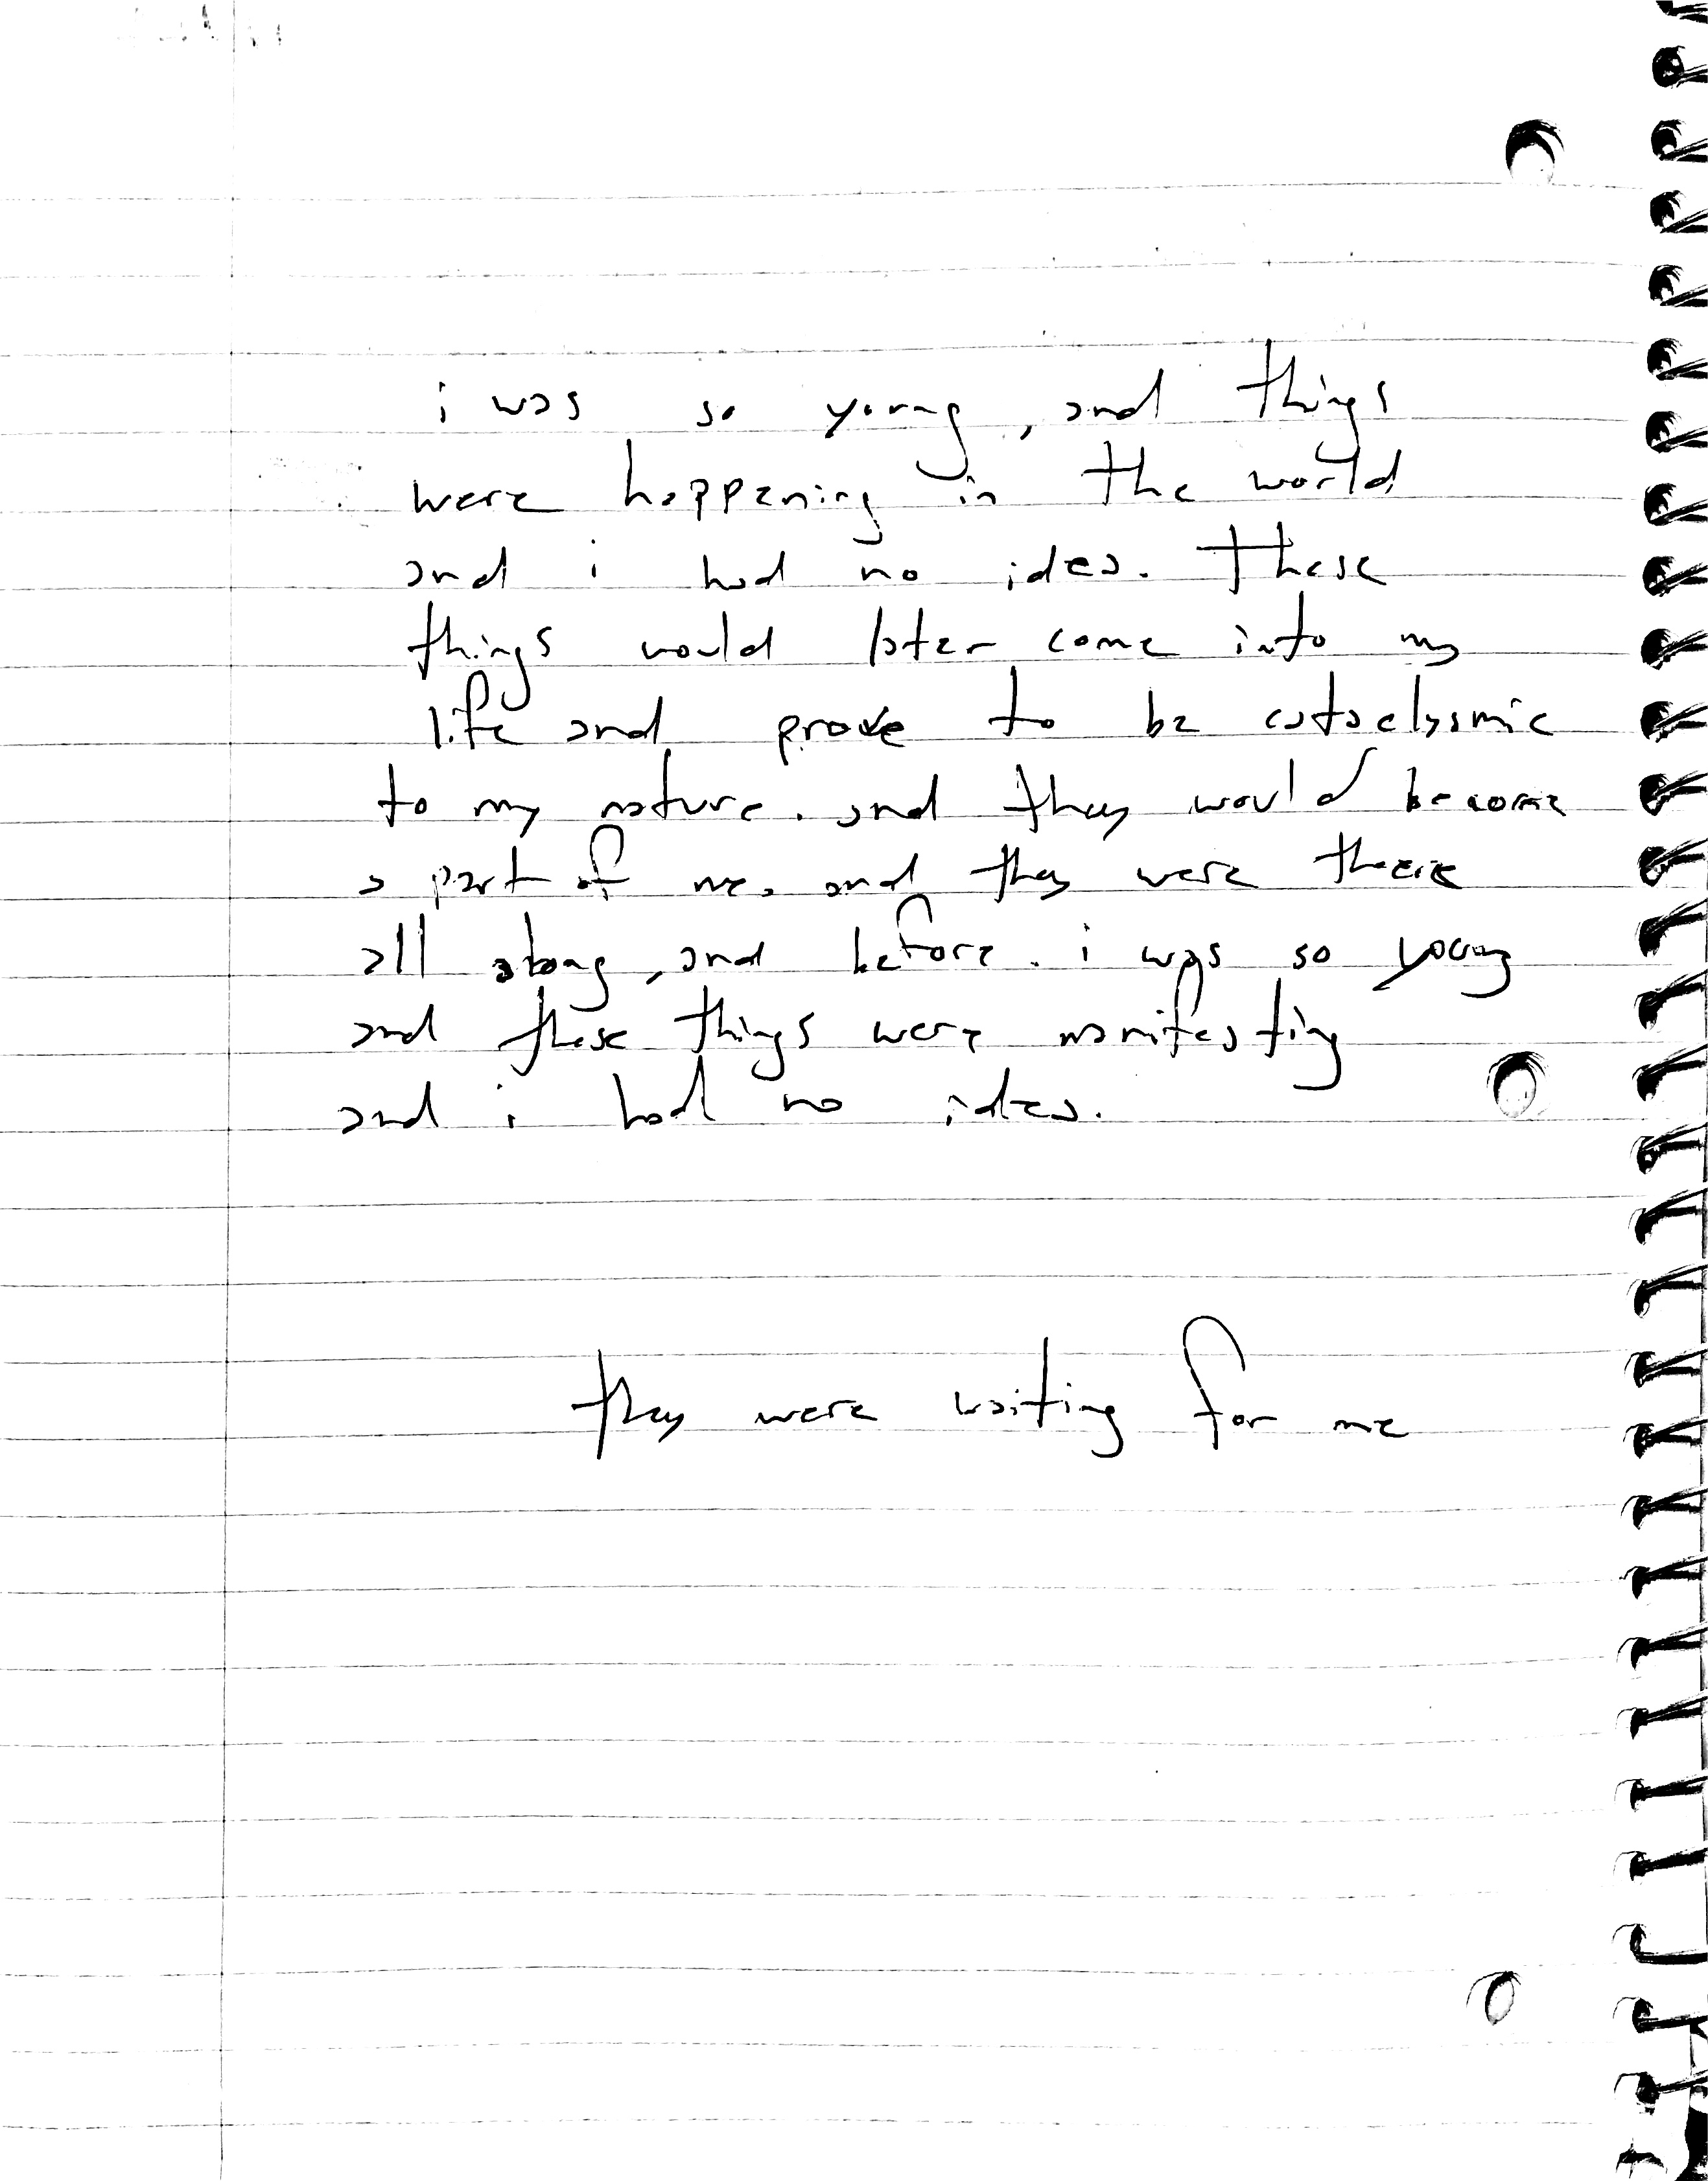 i was so young, and things
were happening in the world
and i had no idea. these
things would later come into my
life and prove to be cataclysmic
to my nature. and they would become
a part of me. and they were there
all along, and before. i was so young
and these things were manifesting
and i had no idea.
they were waiting for me